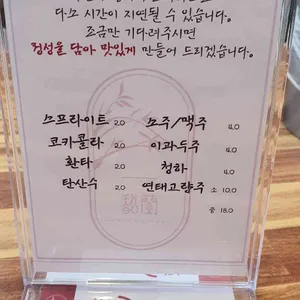 다소 시간이 지연될 수 있습니다.
조금만 기다려주시면
정성을 담아 맛있게 만들어 드리겠습니다.
스프라이트 2.0 소주/맥주 4.0
코카콜라 2.0 이과두주 4.0
환타 2.0 청하 4.0
탄산수 2.0 연태고량주 소 10.0
중 18.0